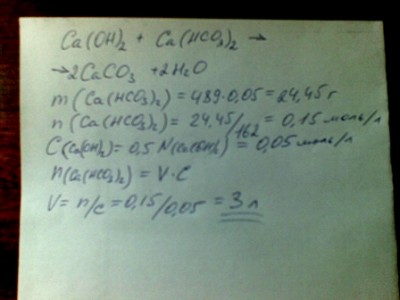 Ca(OH)₂ + Ca(HCO₃)₂ →
→ 2CaCO₃ + 2H₂O
m(Ca(HCO₃)₂) = 489·0,05 = 24,45 г
n(Ca(HCO₃)₂) = 24,45/162 = 0,15 моль/л
C(Ca(OH)₂) = 0,5 N(Ca(OH)₂) = 0,05 моль/л
n(Ca(HCO₃)₂) = V·C
V = n/c = 0,15/0,05 = 3 л